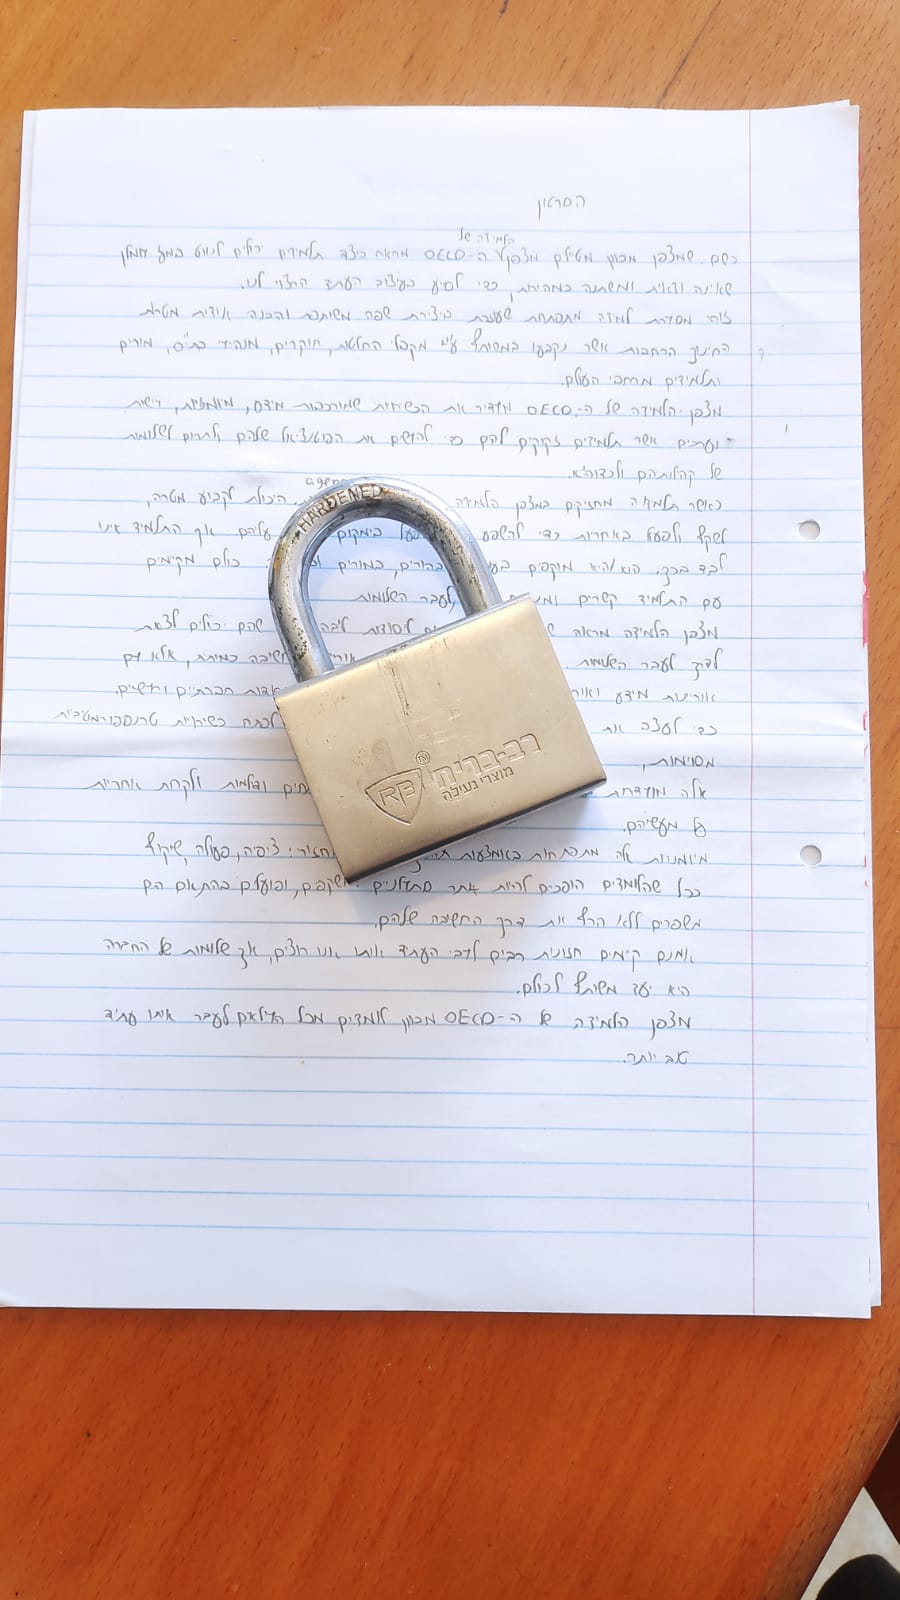 הסרטון
הלמידה של
כשם שמצפן מכוון מטיילים מצפן ה-OECD מראה כיצד תלמידים יכולים לנווט במזג
שאינה ודאית ומשתנה במהירות, כדי לסייע בעיצוב העתיד הרצוי לנו.
זוהי מסגרת למידה מתפתחת שעוזרת ביצירת שפה משותפת והבנה אודות מטרות
החינוך הרחבות אשר נקבעו במשותף ע"י מקבלי החלטות, חוקרים, מנהלי בת"ס, מורים
ותלמידים מרחבי העולם.
מצפן הלמידה של ה-OECD מגדיר את הכשירויות שמורכבות מידע, מיומנויות, גישות
וערכים אשר תלמידים זקוקים להם כדי להגשים את הפוטנציאל שלהם ולתרום לשלומות
של קהילותיהם ולכדוה"א.
כאשר תלמיד/ה מחזיקים במצפן הלמידה היכולת לקבוע מטרה,
לשקף ולפעול באחריות כדי להשפיע במקום עליהם. אף התלמיד אינו
לבד בכך. הוא/היא מוקפים בהורים, במורים כולם מקיימים
עם התלמיד קשרים לעבר השלומות
מצפן הלמידה מראה ליסודות ליבה שהם יכולים לצאת
לדרך לעבר השלומות. חשיבה כמותית, אלא גם
אוריינות מידע חברתיים ורגשיים.
כדי לעצב את לפתח כשירויות טרנספורמטיביות
מסוימות,
אלה מוגדרות ודילמות ולקחת אחריות
על מעשיהם.
מיומנויות אלה מתפתחות באמצעות חזרי: ציפיה, פעולה, שיקוף
ככל שהלומדים הופכים להיות יותר מסתגלים, משקפים, ופועלים בהתאם הם
משפרים ללא הרף את דרך החשיבה שלהם.
אומנם קיימים חזונות רבים לגבי העתיד אותו אנו רוצים, אך שלומות של החברה
היא יעד משותף לכולם.
מצפן הלמידה של ה-OECD מכוון לומדים מכל הגילאים לעבר אותו עתיד
טוב יותר.
HARDENED
RB
רב-בריח
מוצרי נעילה